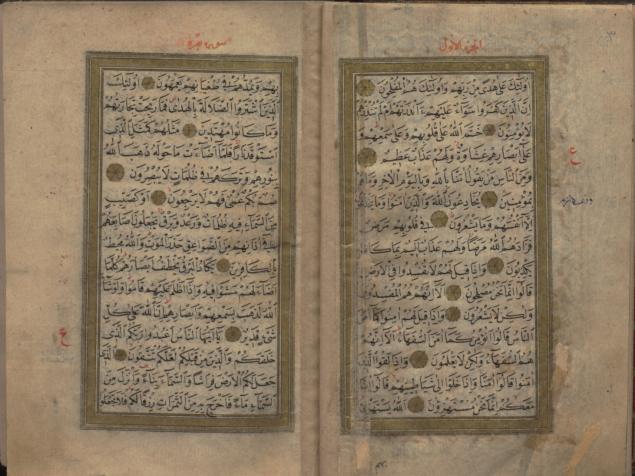 الجزء الاول
اولئك على هدى من ربهم واولئك هم المفلحون
ان الذين كفروا سواء عليهم ءانذرتهم ام لم تنذرهم
لا يؤمنون ختم الله على قلوبهم وعلى سمعهم و
على ابصارهم غشاوة ولهم عذاب عظيم
ومن الناس من يقول امنا بالله وباليوم الاخر وما هم
بمؤمنين يخادعون الله والذين امنوا وما يخدعون
الا انفسهم وما يشعرون في قلوبهم مرض
فزادهم الله مرضا ولهم عذاب اليم بما كانوا
يكذبون واذا قيل لهم لا تفسدوا في الارض
قالوا انما نحن مصلحون الا انهم هم المفسدون
ولكن لا يشعرون واذا قيل لهم امنوا كما امن
الناس قالوا انؤمن كما امن السفهاء الا انهم
هم السفهاء ولكن لا يعلمون واذا لقوا الذين
امنوا قالوا امنا واذا خلوا الى شياطينهم قالوا انا
معكم انما نحن مستهزؤن الله يستهزئ
ع
بهم ويمدهم في طغيانهم يعمهون اولئك
الذين اشتروا الضلالة بالهدى فما ربحت تجارتهم
وما كانوا مهتدين مثلهم كمثل الذي
استوقد نارا فلما اضاءت ما حوله ذهب الله
بنورهم وتركهم في ظلمات لا يبصرون
صم بكم عمي فهم لا يرجعون او كصيب
من السماء فيه ظلمات ورعد وبرق يجعلون اصابعهم
في اذانهم من الصواعق حذر الموت والله محيط
بالكافرين يكاد البرق يخطف ابصارهم كلما
اضاء لهم مشوا فيه واذا اظلم عليهم قاموا ولو شاء
الله لذهب بسمعهم وابصارهم ان الله على كل
شيء قدير يا ايها الناس اعبدوا ربكم الذي
خلقكم والذين من قبلكم لعلكم تتقون الذي
جعل لكم الارض فراشا والسماء بناء وانزل من
السماء ماء فاخرج به من الثمرات رزقا لكم فلا تجعلوا
ع